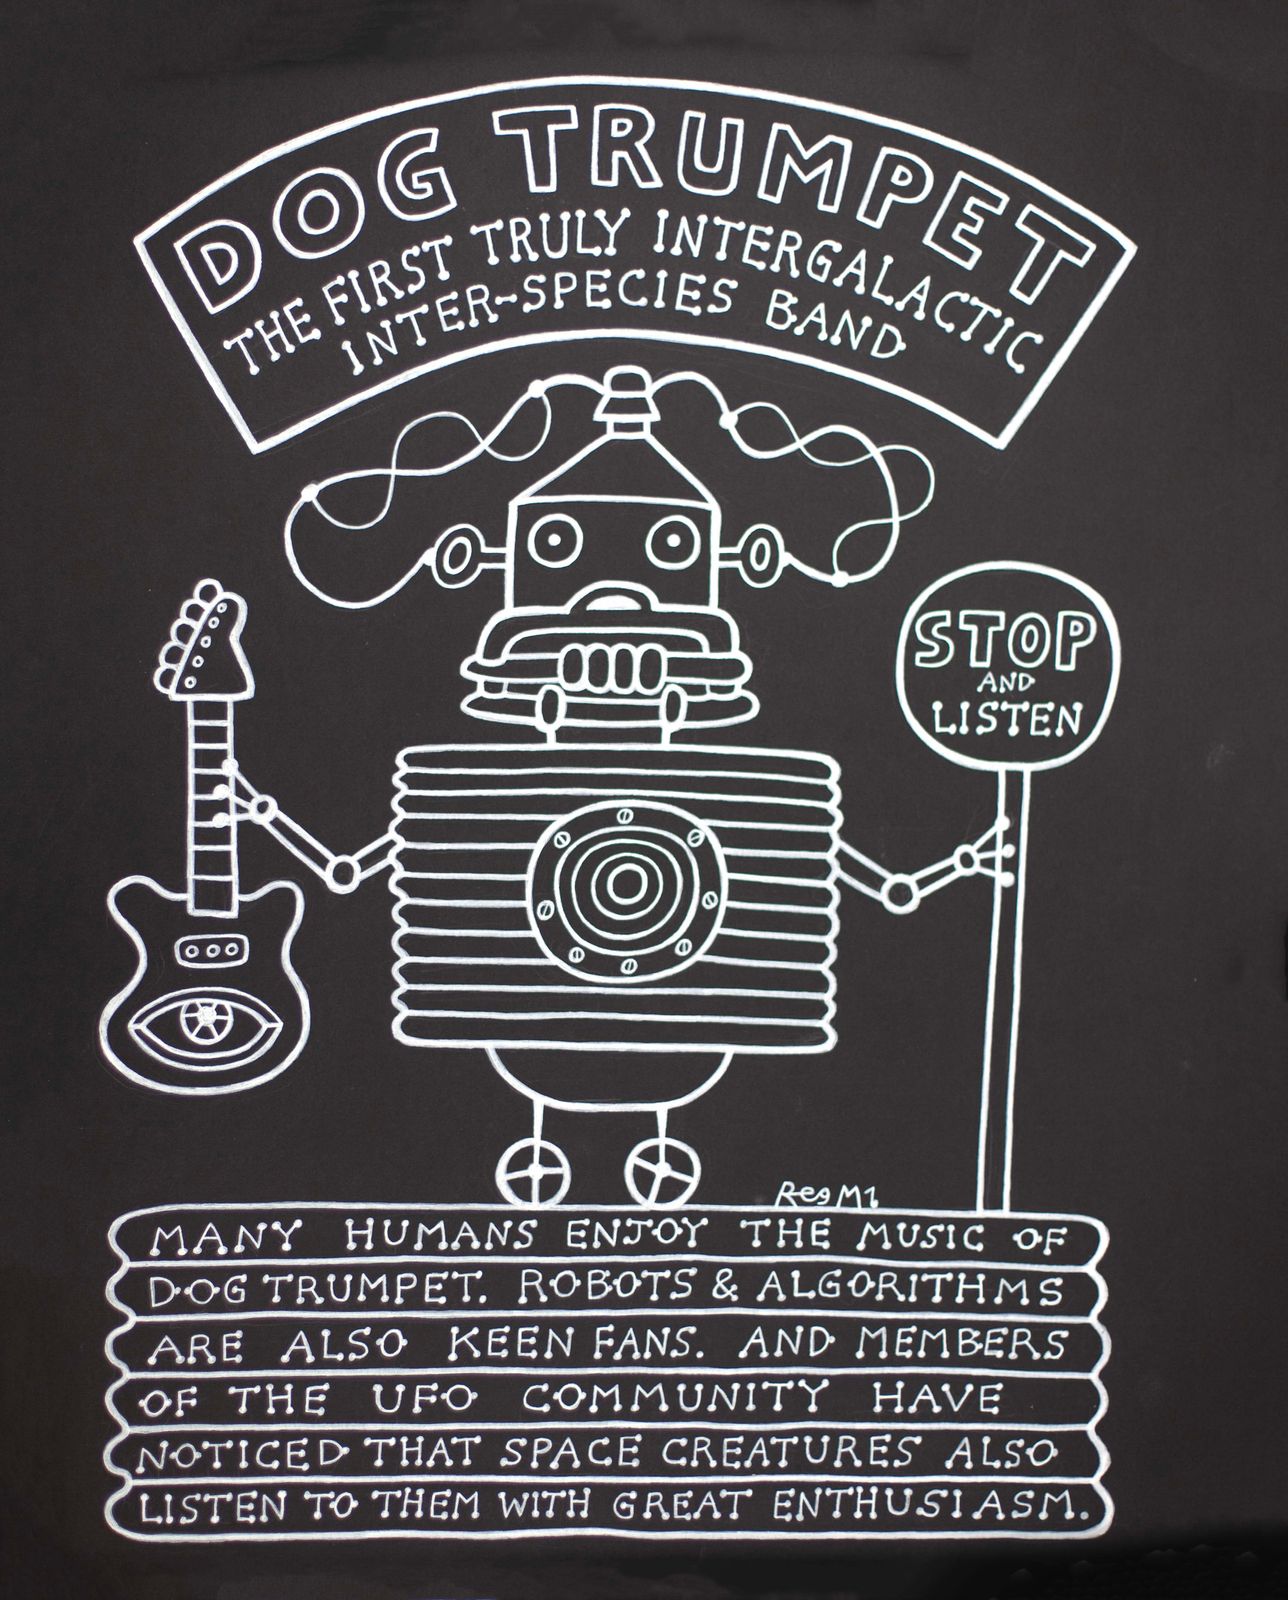 DOG TRUMPET
THE FIRST TRULY INTERGALACTIC
INTER-SPECIES BAND
STOP
AND
LISTEN
Reg M1.
MANY HUMANS ENJOY THE MUSIC OF
DOG TRUMPET. ROBOTS & ALGORITHMS
ARE ALSO KEEN FANS. AND MEMBERS
OF THE UFO COMMUNITY HAVE
NOTICED THAT SPACE CREATURES ALSO
LISTEN TO THEM WITH GREAT ENTHUSIASM.